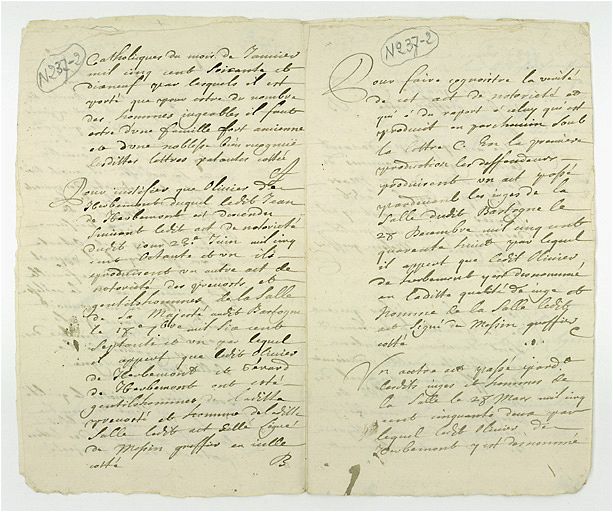 No 37-2
Catholiques du mois de Janvier
mil cinq cent soixante et
dixneuf par lesquels il est
porté que pour estre du nombre
des hommes jugeables il faut
estre d'une famille fort ancienne
et d'une noblesse bien
lesdittes lettres patentes cotté
A
Pour justifier que Olivier de
Herbemont duquel ledit Jean
de Herbemont est descendu
suivant ledit act de notorieté
dudit jour 28e Juin mil cinq
cent octante et un ils
produisirent un autre act de
notorieté des prevosts et
gentilshommes de la Salle
de Sa Majesté audit Bastogne
le 17e mil six cent
septante et un par lequel
il appert que ledit Olivier
de Herbemont et Gerard
de Herbemont ont esté
gentilshommes de laditte
prevosté et homme de laditte
Salle ledit act dell signé
de Mosin greffier en icelle
cotté B
No 37-2
Pour faire cognoistre la verité
de cet act de notorieté et
qu'il a du raport à celuy qui est
produit en parchemin soub
la lettre C. En la premiere
production les deffendeurs
produisirent un act passé
pardevant les juges de la
Salle dudit Bastogne le
28 Decembre mil cinq cent
quarante huit par lequel
il appert que ledit Olivier
de herbemont y est denommé
en laditte qualité de juge et
homme de la Salle ledit
act signé de Mosin greffier
cotté C
Un autre act passé pardt
lesdits juges et hommes de
la Salle le 28 Mars mil cinq
cent cinquante deux par
lequel ledit Olivier de
herbemont y est denommé